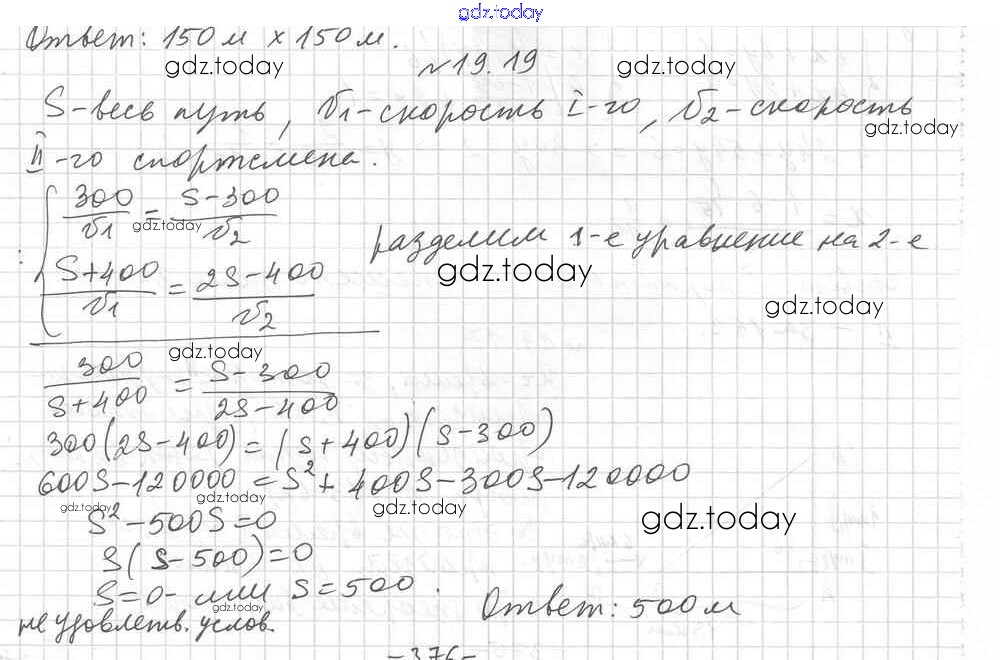 gdz.today
Ответ: 150 м х 150 м.
gdz.today
№19.19
gdz.today
S-весь путь, V₁-скорость I-го, V₂-скорость
gdz.today
II-го спортсмена.
300/V₁ = S-300/V₂
gdz.today
разделим 1-е уравнение на 2-е
: S+400/V₁ = 2S-400/V₂
gdz.today
gdz.today
gdz.today
300/S+400 = S-300/2S-400
300(2S-400)=(S+400)(S-300)
600S-120000=S²+400S-300S-120000
gdz.today
gdz.today
gdz.today
gdz.today
S²-500S=0
S(S-500)=0
S=0- или S=500.
gdz.today
Ответ: 500м
не удовлетв. услов.
-376-